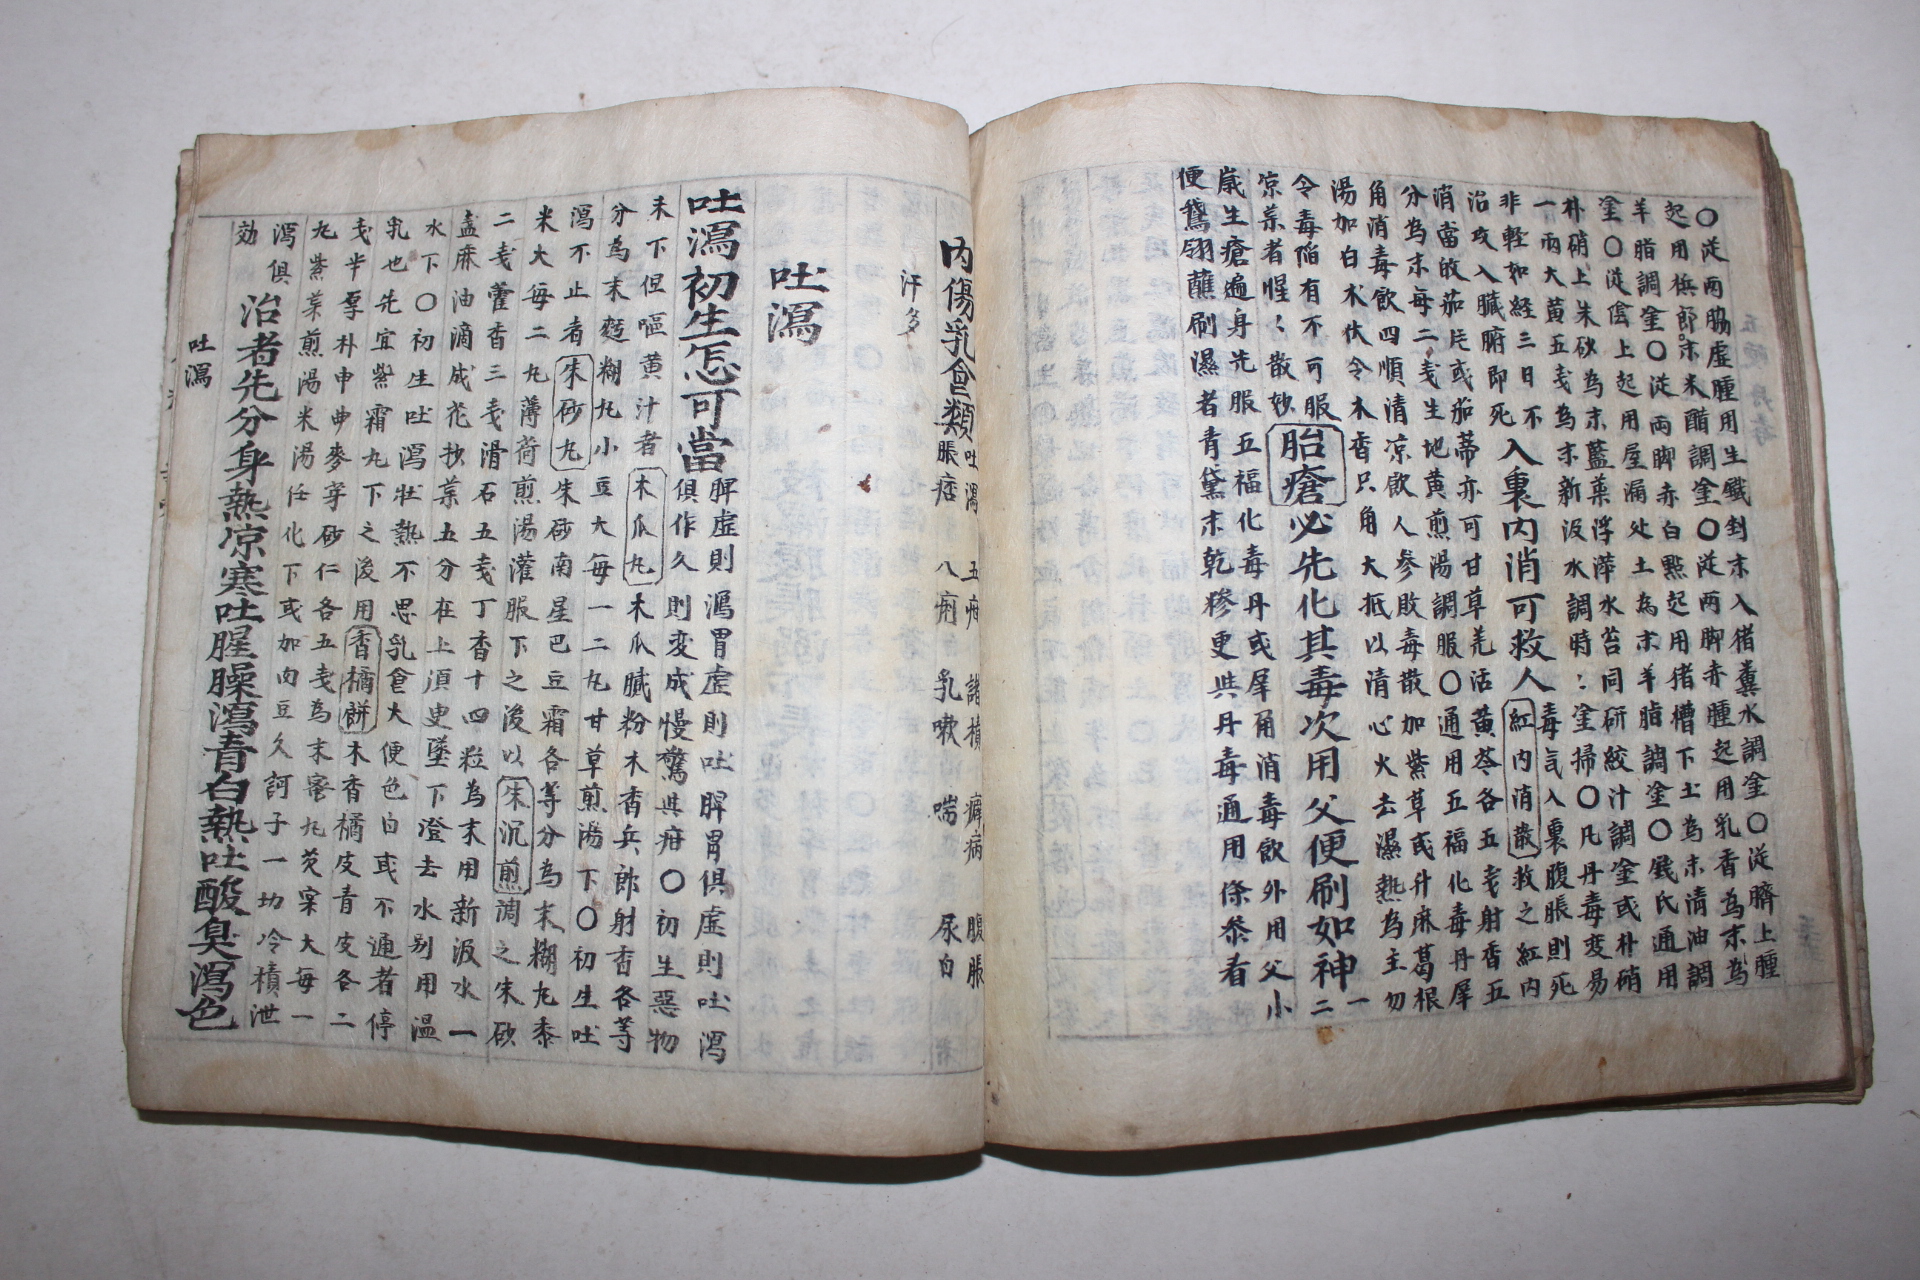 〇從兩脇虛腫用生鐵釗末入猪糞水調塗〇從臍上腫
起用檳郎末米醋調塗〇從兩脚赤腫起用乳香為末
羊脂調塗〇從兩脚赤白㸃起用猪槽下土為末清油調
塗〇從陰上起用屋漏处土為末羊脂調塗〇錢氏通用
朴硝上朱砂為末藍葉浮萍水苔同研絞汁調塗或朴硝
一兩大黃五戔為末新汲水調時塗掃〇凡丹毒變易
非輕如経三日不入臟腑即死入裏内消可救人毒気入裏腹脹則死
紅内消散救之紅内
治攻入臟腑即死
消當㪇茄片或茄蒂亦可甘草羌活黃芩各五戔射香五
分為末每二戔生地黃煎湯調服〇通用五福化毒丹犀
角消毒飲四順清凉飲人參敗毒散加紫草或升麻葛根
湯加白朮茯令木香只角大抵以清心火去濕熱為主勿
令毒陷有不可服
凉藥者惺惺散妙
胎瘡必先化其毒次用父便刷如神
歲生瘡遍身先服五福化毒丹或犀角消毒飲外用父小
便鵞翎蘸刷濕者青黛末乾糝更與丹毒通用條参看
内傷乳食類
吐瀉 五疳 諸積 癖病 腹脹
脹痞 八痢 乳嗽 喘 尿白
汗多
吐瀉
吐瀉初生怎可當
脾虛則瀉胃虛則吐脾胃俱虛則吐瀉
俱作久則変成慢驚與疳〇初生惡物
未下但嘔黃汁者木瓜丸木瓜膩粉木香兵郎射香各等
分為末麪糊丸小豆大每一二丸甘草煎湯下〇初生吐
瀉不止者朱砂丸朱砂南星巴豆霜各等分為末糊丸黍
米大每二丸薄荷煎湯灌服下之後以朱沉煎調之朱砂
二戔藿香三戔滑石五戔丁香十四粒為末用新汲水一
盞麻油滴成花抄藥五分在上須臾墜下澄去水别用温
水下〇初生吐瀉壯熱不思乳食大便色白或不通者停
乳也先宜紫霜丸下之後用香橘餅木香橘皮青皮各二
戔半厚朴申曲麥芽砂仁各五戔為末蜜丸芡宲大每一
丸紫菜煎湯米湯任化下或加肉豆久訶子一功冷積泄
瀉俱
効
治者先分身熱凉寒吐腥臊瀉青白熱吐酸臭瀉色
吐瀉